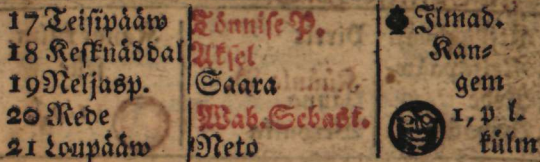 17 Teisipääw Tönnise P. Ilmad.
18 Kesknäddal Aksel Kan⸗
19 Neljasp. Saara gem
20 Rede Wab. Sebast. 1, p l.
21 Loupääw Neto külm